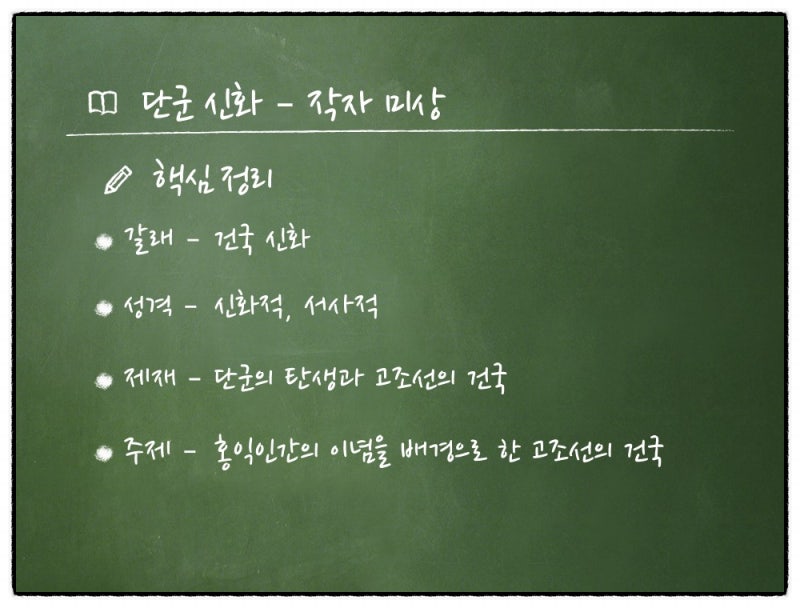 단군 신화 - 작자 미상
핵심 정리
갈래 - 건국 신화
성격 - 신화적, 서사적
제재 - 단군의 탄생과 고조선의 건국
주제 - 홍익인간의 이념을 배경으로 한 고조선의 건국